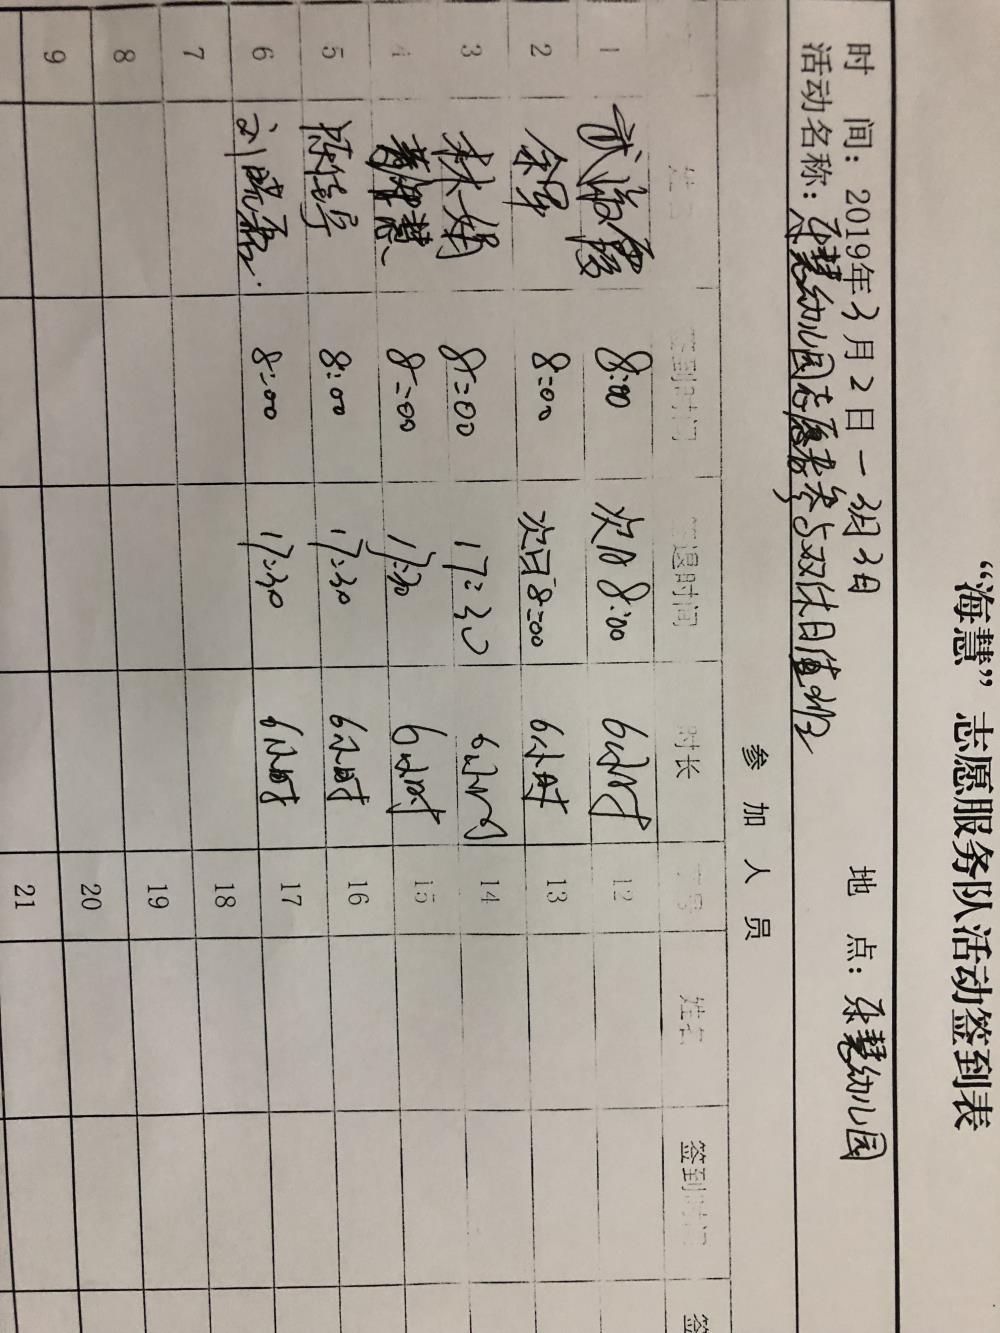 “海慧”志愿服务队活动签到表
时 间：2019年3月2日一3月3日 地 点：乐慧幼儿园
活动名称：乐慧幼儿园志愿者参与双休日值班
参 加 人 员
姓名 签到时间 签退时间 时长 序号 姓名 签到时间 签
1 8:00 次日8:00 6小时 12
2 余军 8:00 次日8:00 6小时 13
3 林娟 8:00 17:30 6小时 14
4 8:00 17:30 6小时 15
5 陈佳宁 8:00 17:30 6小时 16
6 刘晓磊 8:00 17:30 6小时 17
7 18
8 19
9 20
21